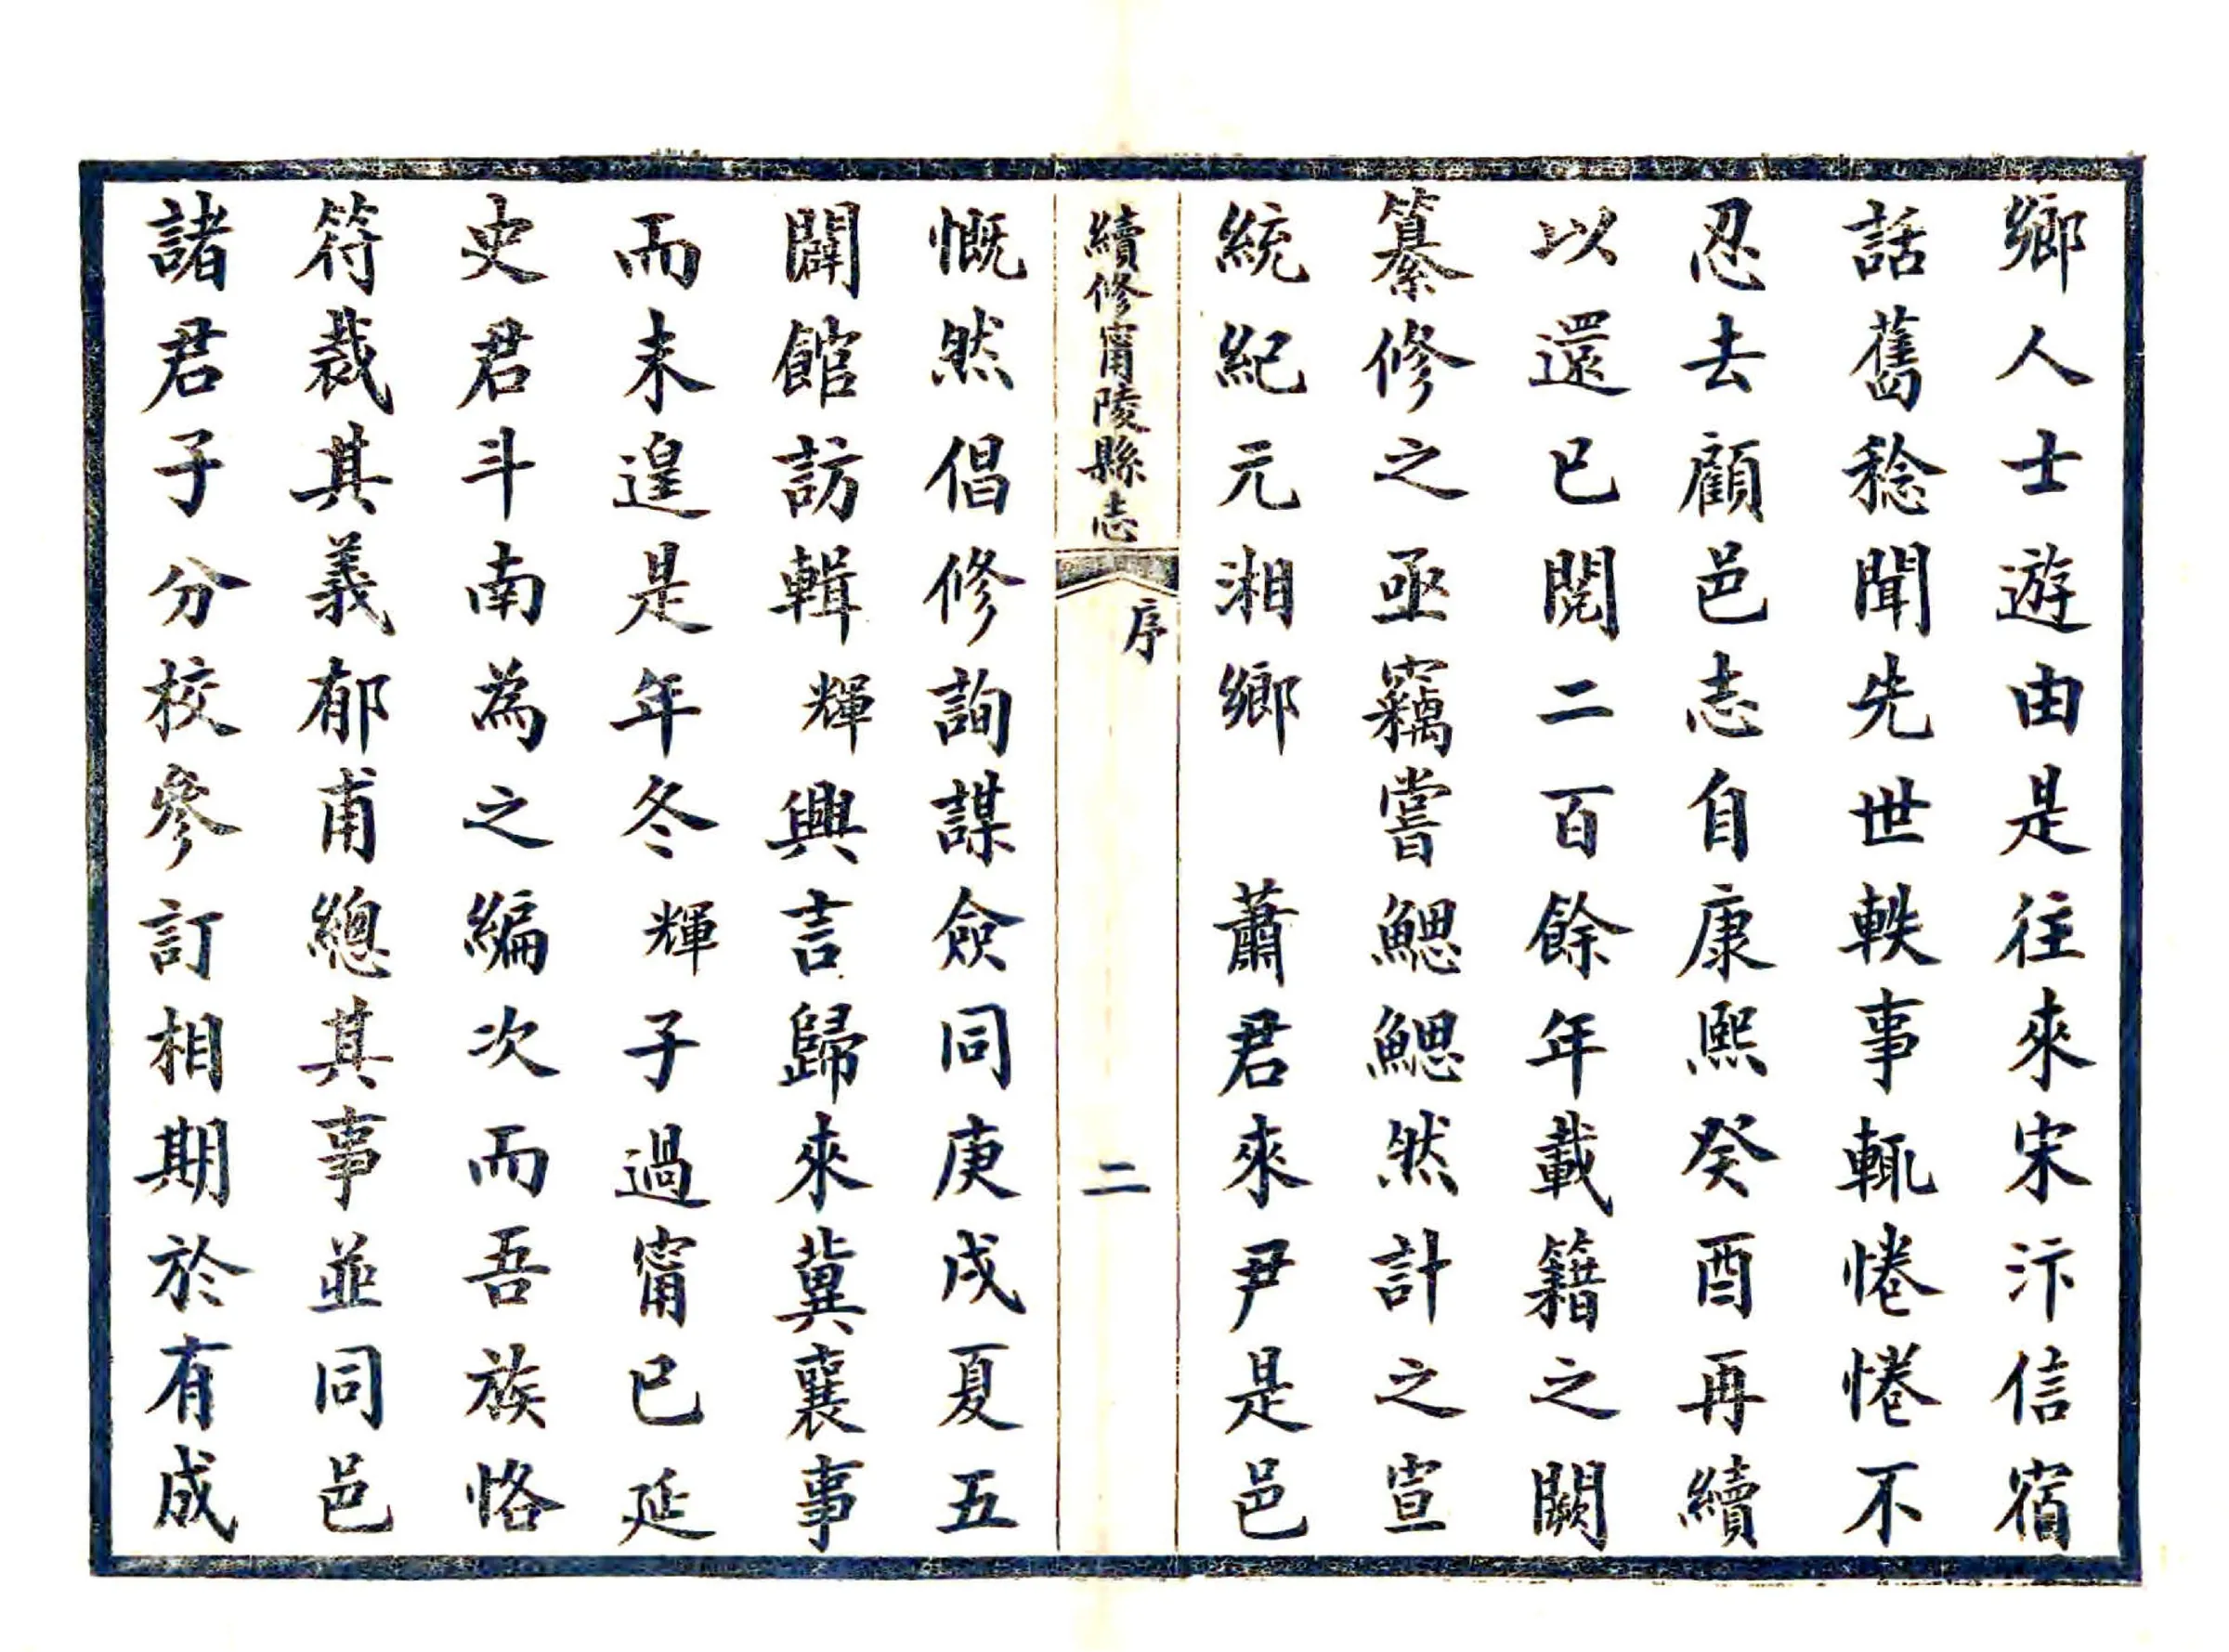 鄉人士遊由是往來宋汴信宿
話舊稔聞先世軼事輒惓惓不
忍去顧邑志自康熙癸酉再續
以還已閱二百餘年載籍之闕
纂修之亟竊嘗鰓鰓然計之宣
統紀元湘鄉 蕭君來尹是邑
續修甯陵縣志 序 二
慨然倡修詢謀僉同庚戌夏五
闢館訪輯輝興言歸來冀襄事
而未遑是年冬輝子過甯已延
史君斗南為之編次而吾族恪
符裁其義郁甫總其事並同邑
諸君子分校參訂相期於有成